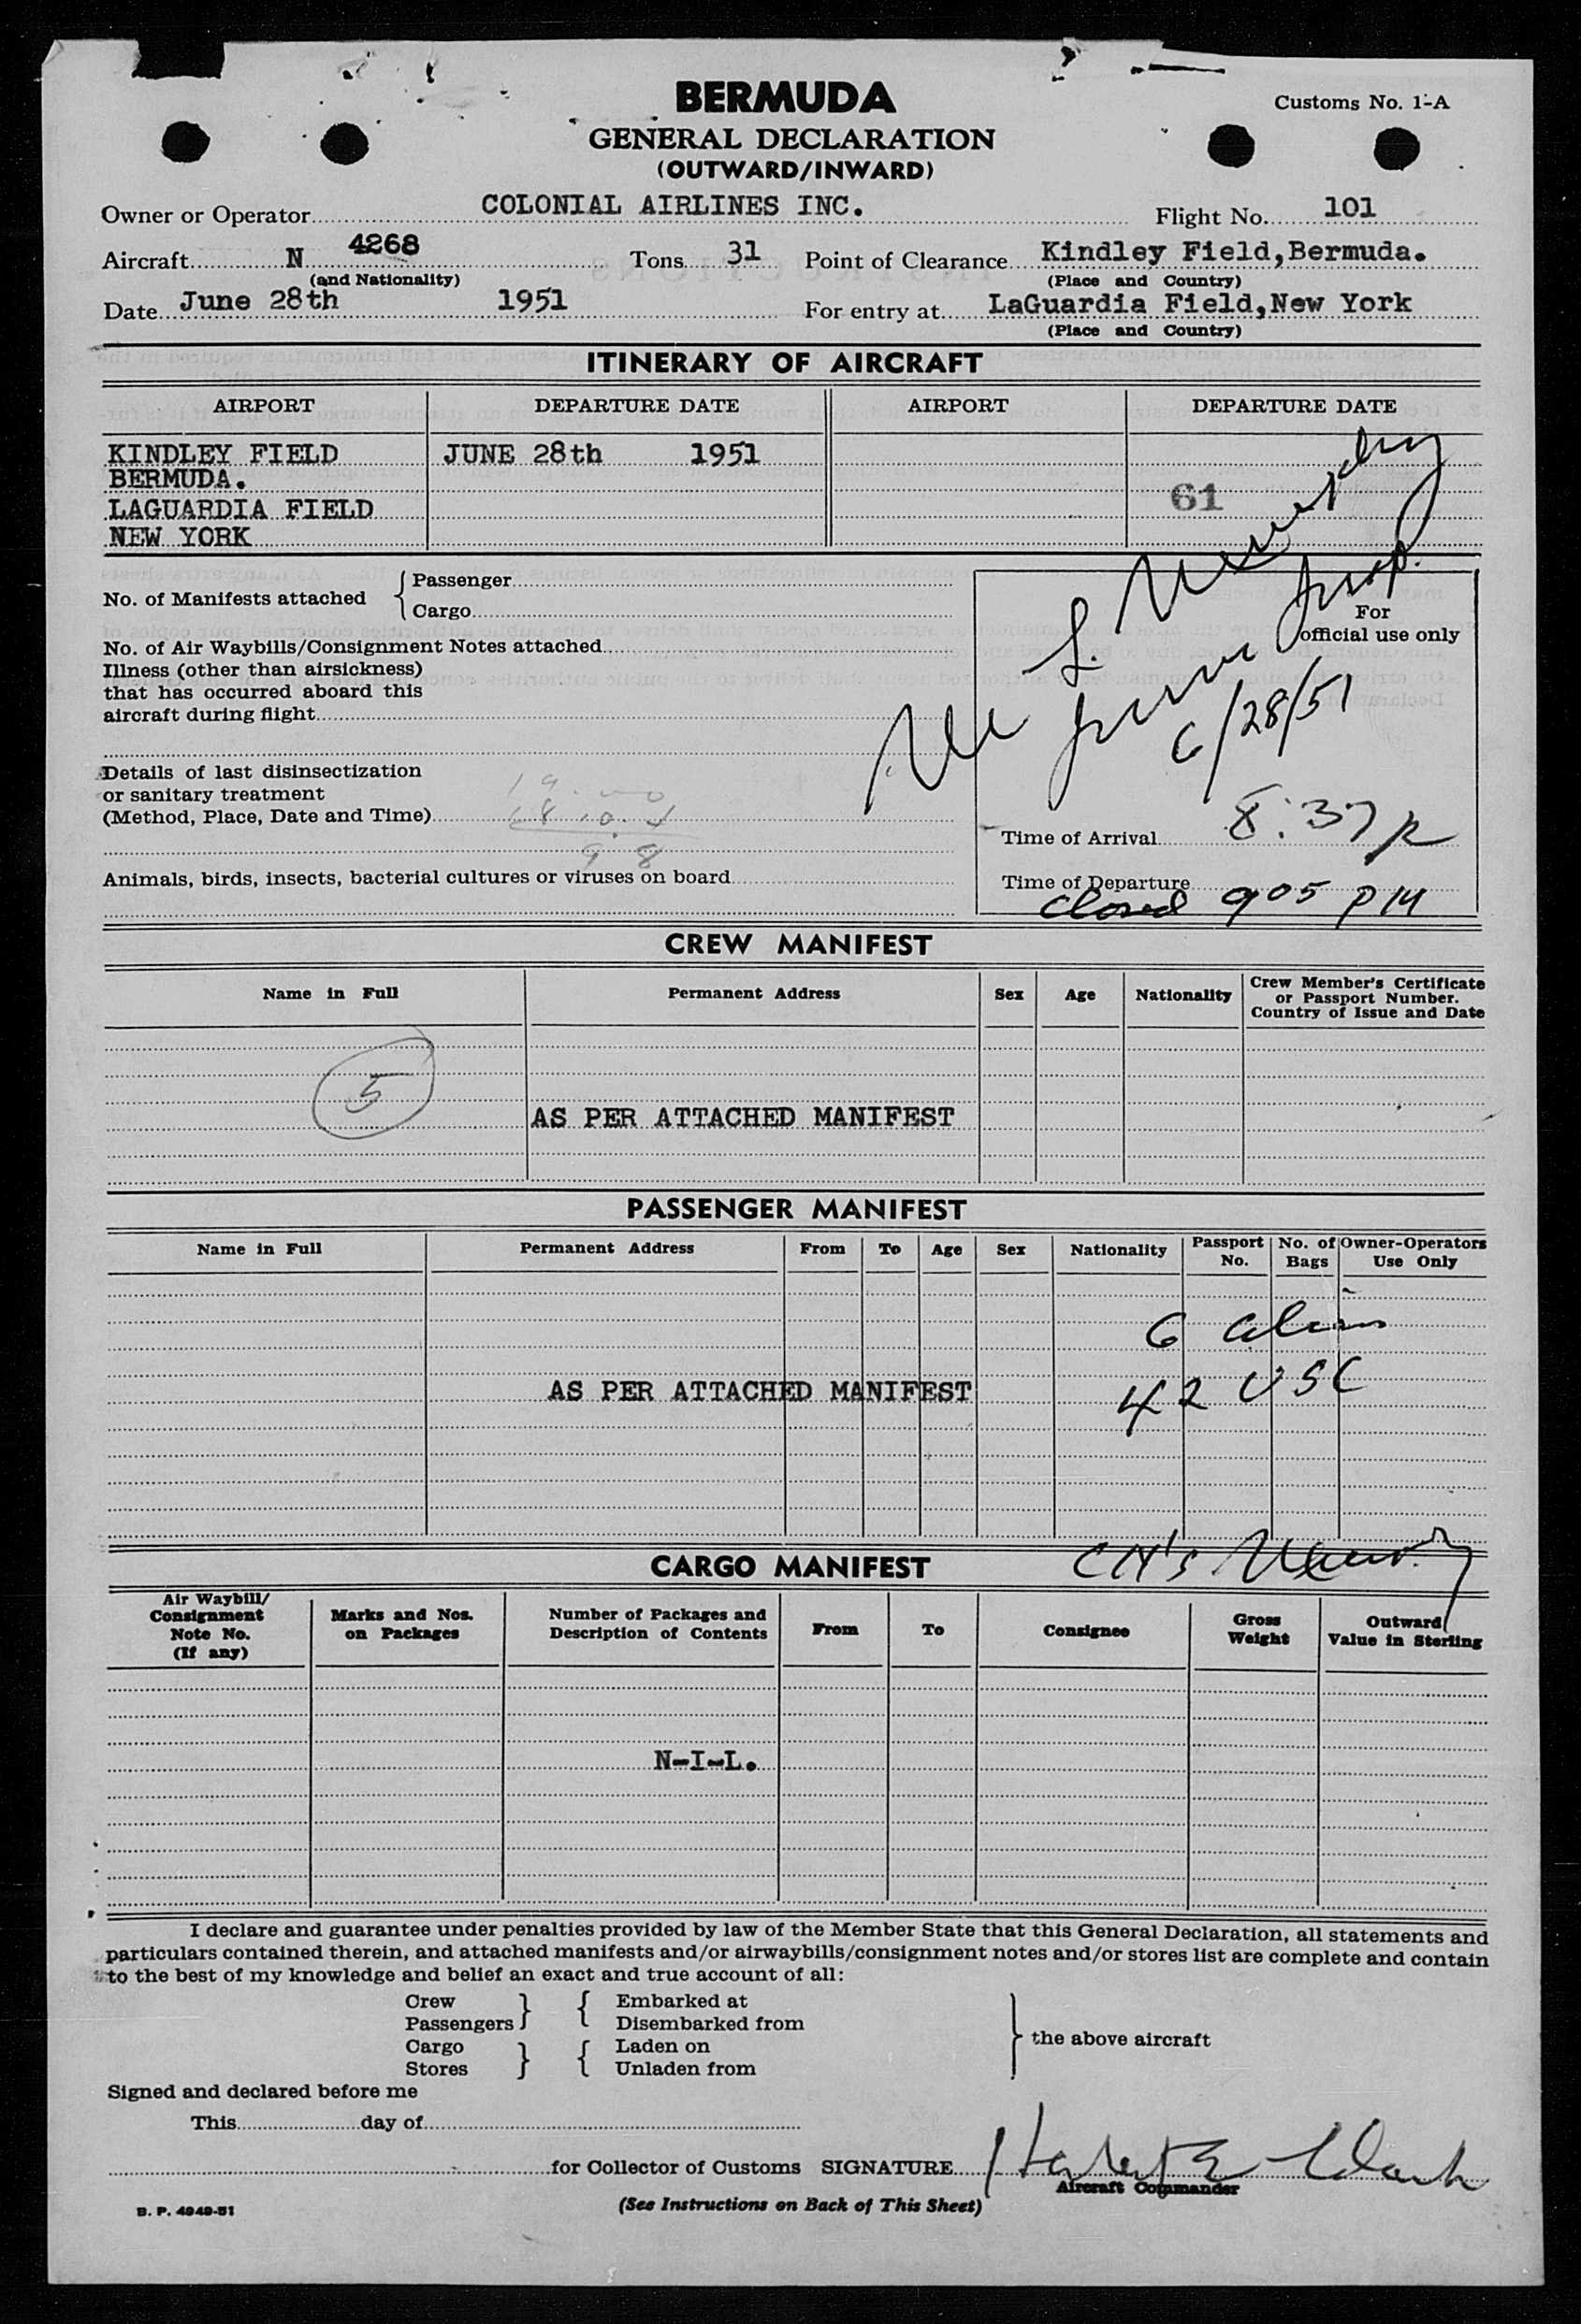 BERMUDA
Customs No. 1-A
GENERAL DECLARATION
(OUTWARD/INWARD)
Owner or Operator COLONIAL AIRLINES INC. Flight No. 101
Aircraft N 4268 Tons 31 Point of Clearance Kindley Field,Bermuda.
(and Nationality) (Place and Country)
Date June 28th 1951 For entry at LaGuardia Field,New York
(Place and Country)
ITINERARY OF AIRCRAFT
AIRPORT DEPARTURE DATE AIRPORT DEPARTURE DATE
KINDLEY FIELD JUNE 28th 1951
BERMUDA.
61
LAGUARDIA FIELD
NEW YORK
No. of Manifests attached { Passenger
Cargo
For
official use only
No. of Air Waybills/Consignment Notes attached
Illness (other than airsickness)
that has occurred aboard this
aircraft during flight
6/28/51
Details of last disinsectization
or sanitary treatment
(Method, Place, Date and Time)
9 8
Time of Arrival 8:37 p
Animals, birds, insects, bacterial cultures or viruses on board
Time of Departure
closed 905 PM
CREW MANIFEST
Name in Full Permanent Address Sex Age Nationality Crew Member's Certificate
or Passport Number.
Country of Issue and Date
5
AS PER ATTACHED MANIFEST
PASSENGER MANIFEST
Name in Full Permanent Address From To Age Sex Nationality Passport No. No. of Bags Owner-Operators Use Only
6 aliens
AS PER ATTACHED MANIFEST 42 USC
CARGO MANIFEST
Air Waybill/
Consignment
Note No.
(If any)
Marks and Nos.
on Packages
Number of Packages and
Description of Contents
From To Consignee
Gross
Weight
Outward
Value in Sterling
N-I-L.
I declare and guarantee under penalties provided by law of the Member State that this General Declaration, all statements and
particulars contained therein, and attached manifests and/or airwaybills/consignment notes and/or stores list are complete and contain
to the best of my knowledge and belief an exact and true account of all:
Crew } { Embarked at
Passengers Disembarked from
} the above aircraft
Cargo } { Laden on
Stores Unladen from
Signed and declared before me
This day of
for Collector of Customs SIGNATURE
Aircraft Commander
B. P. 4949-51
(See Instructions on Back of This Sheet)